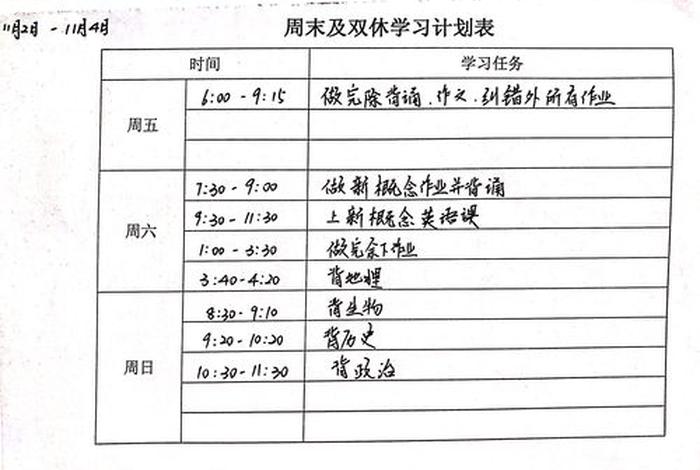 11月2日 - 11月4日
周末及双休学习计划表
时间 学习任务
周五
6:00 - 9:15 做完除背诵、作文、纠错外所有作业
周六
7:30 - 9:00 做新概念作业并背诵
9:30 - 11:30 上新概念英语课
1:00 - 3:30 做完余下作业
3:40 - 4:20 背地理
周日
8:30 - 9:10 背生物
9:20 - 10:20 背历史
10:30 - 11:30 背政治